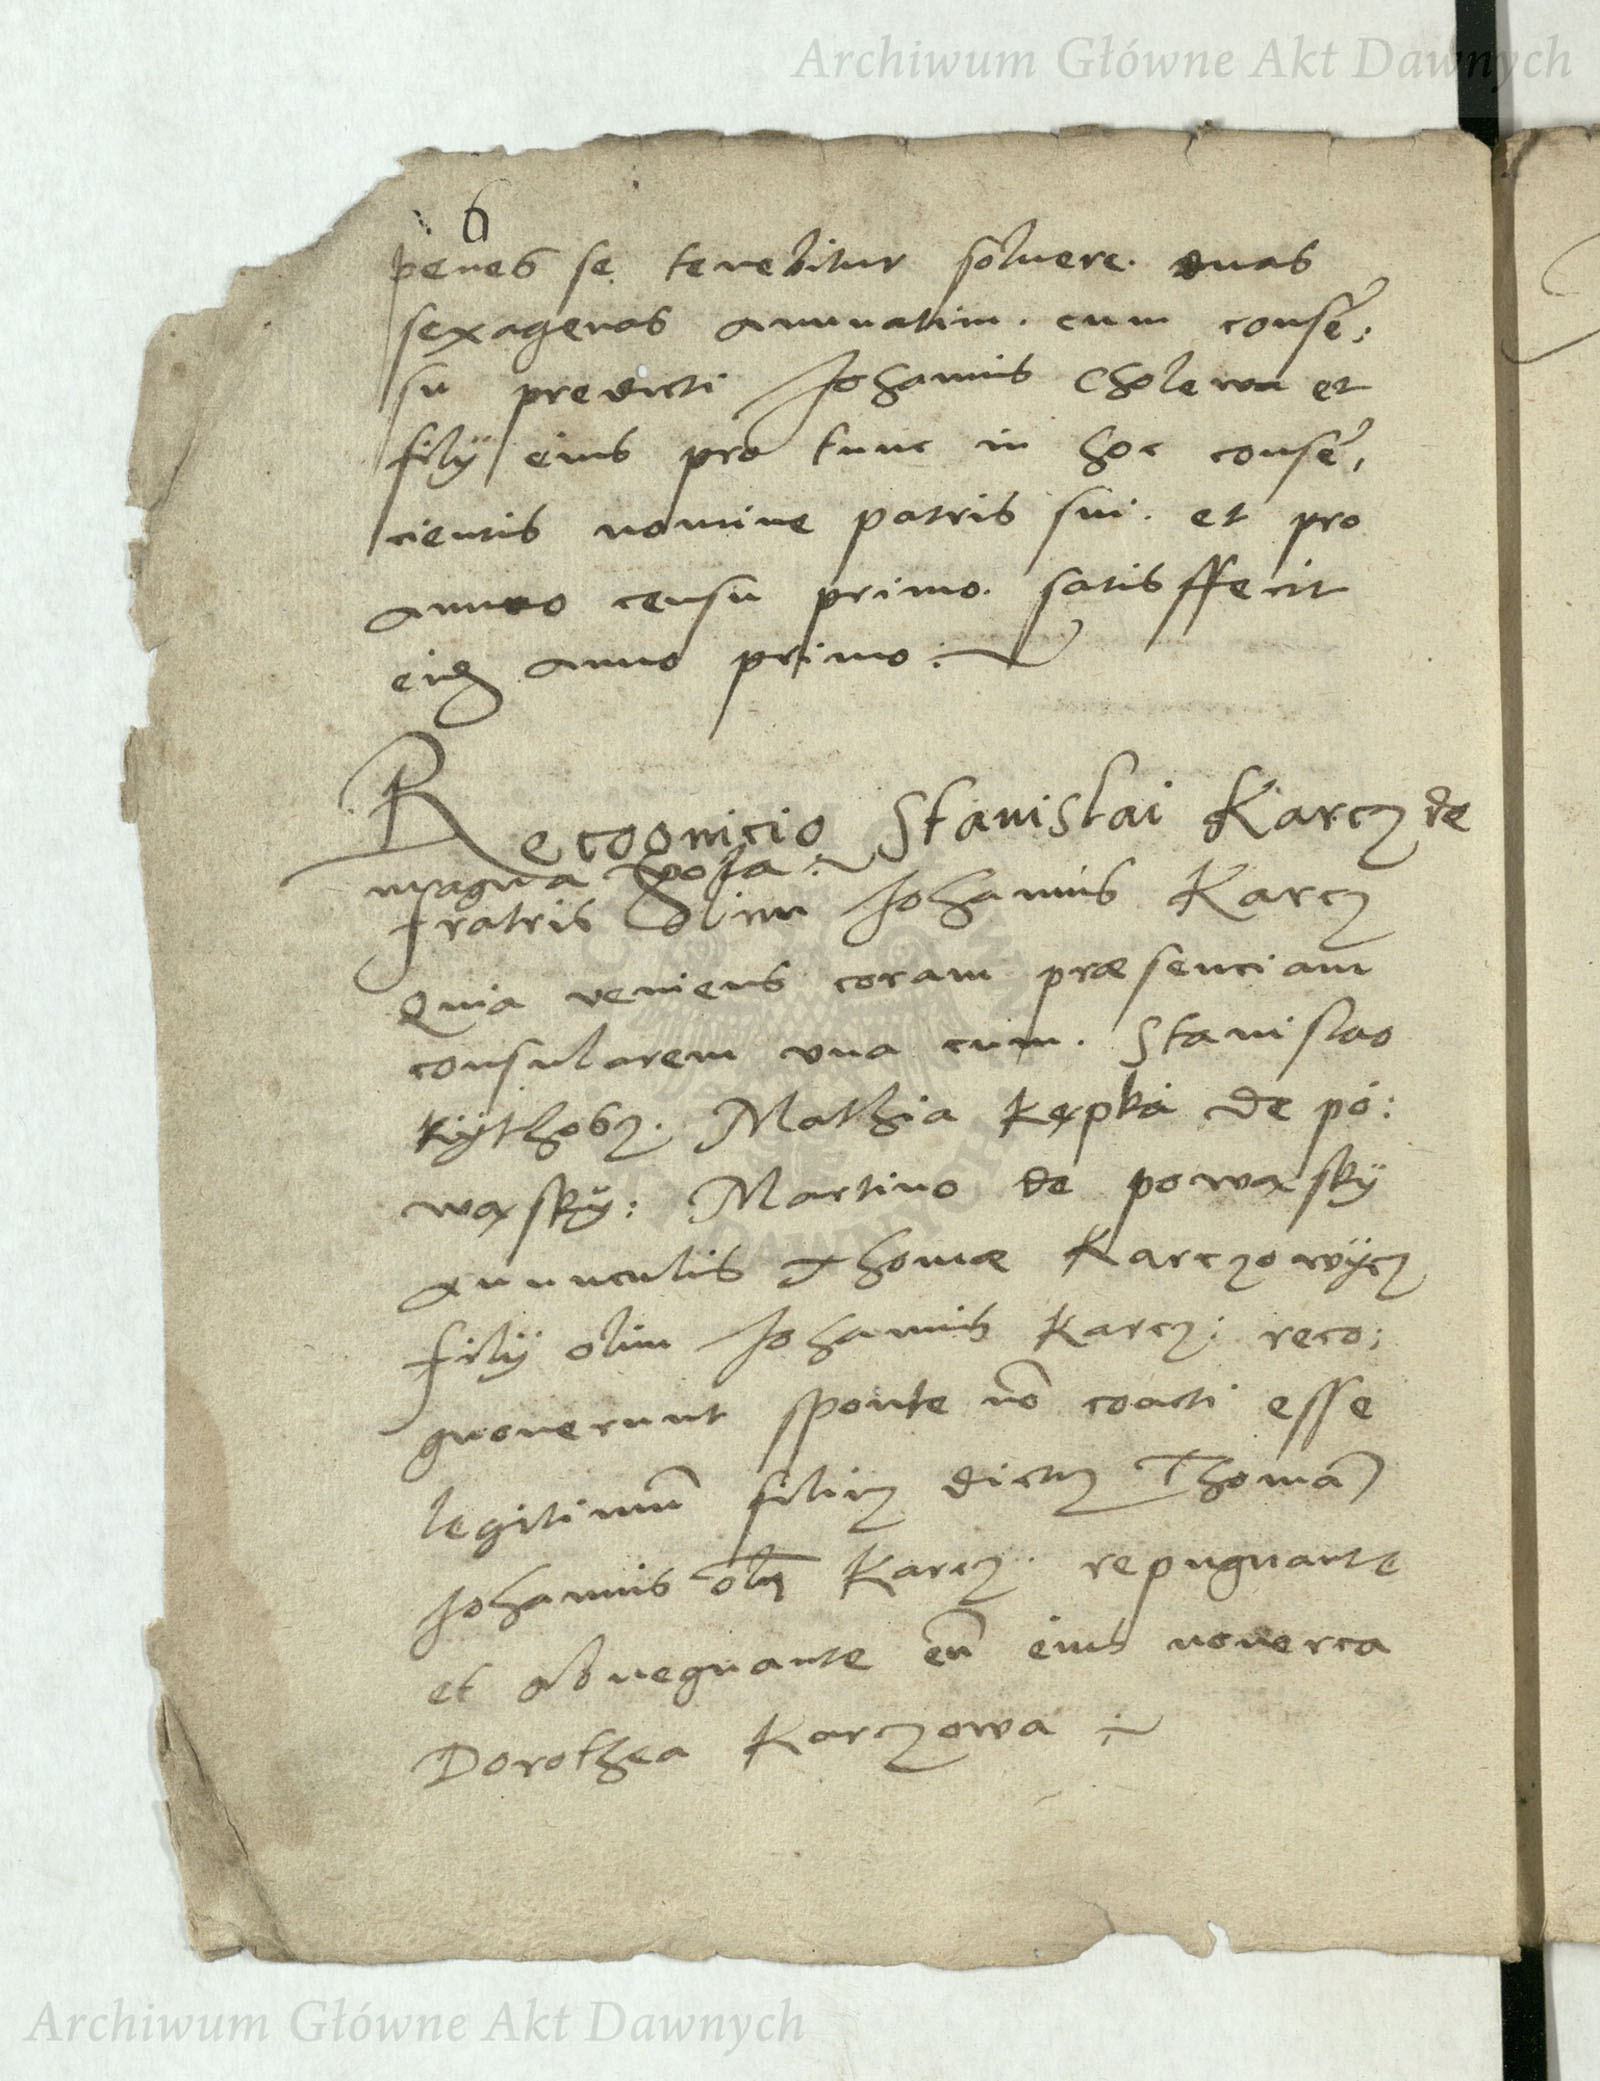 Archiwum Główne Akt Dawnych
6
penes se tenebitur soluere. duas
sexagenas annuatim. cum consē:
su predicti Johannis Cholewa et
filÿ eius pro tunc in hoc consē,
cientis nomine patris sui. et pro
anno censu primo. satisffecit
anno primo:
Recognicio Stanislai Karcz de
magna
fratris olim Johannis Karcz
Quia veniens coram præsenciam
consularem vna cum. Stanislao
Mathia Kępka de po:
waxskÿ: Martino de powaxskÿ
auunculis Thomæ Karczowÿcz
filÿ olim Johannis Karcz: reco:
gnouerunt sponte nō coacti esse
legitimū filiuz dictuz Thomā
Johannis Karcz. repugnante
et abnegnante eū eius nouerca
Dorothea Karczowa
Archiwum Główne Akt Dawnych